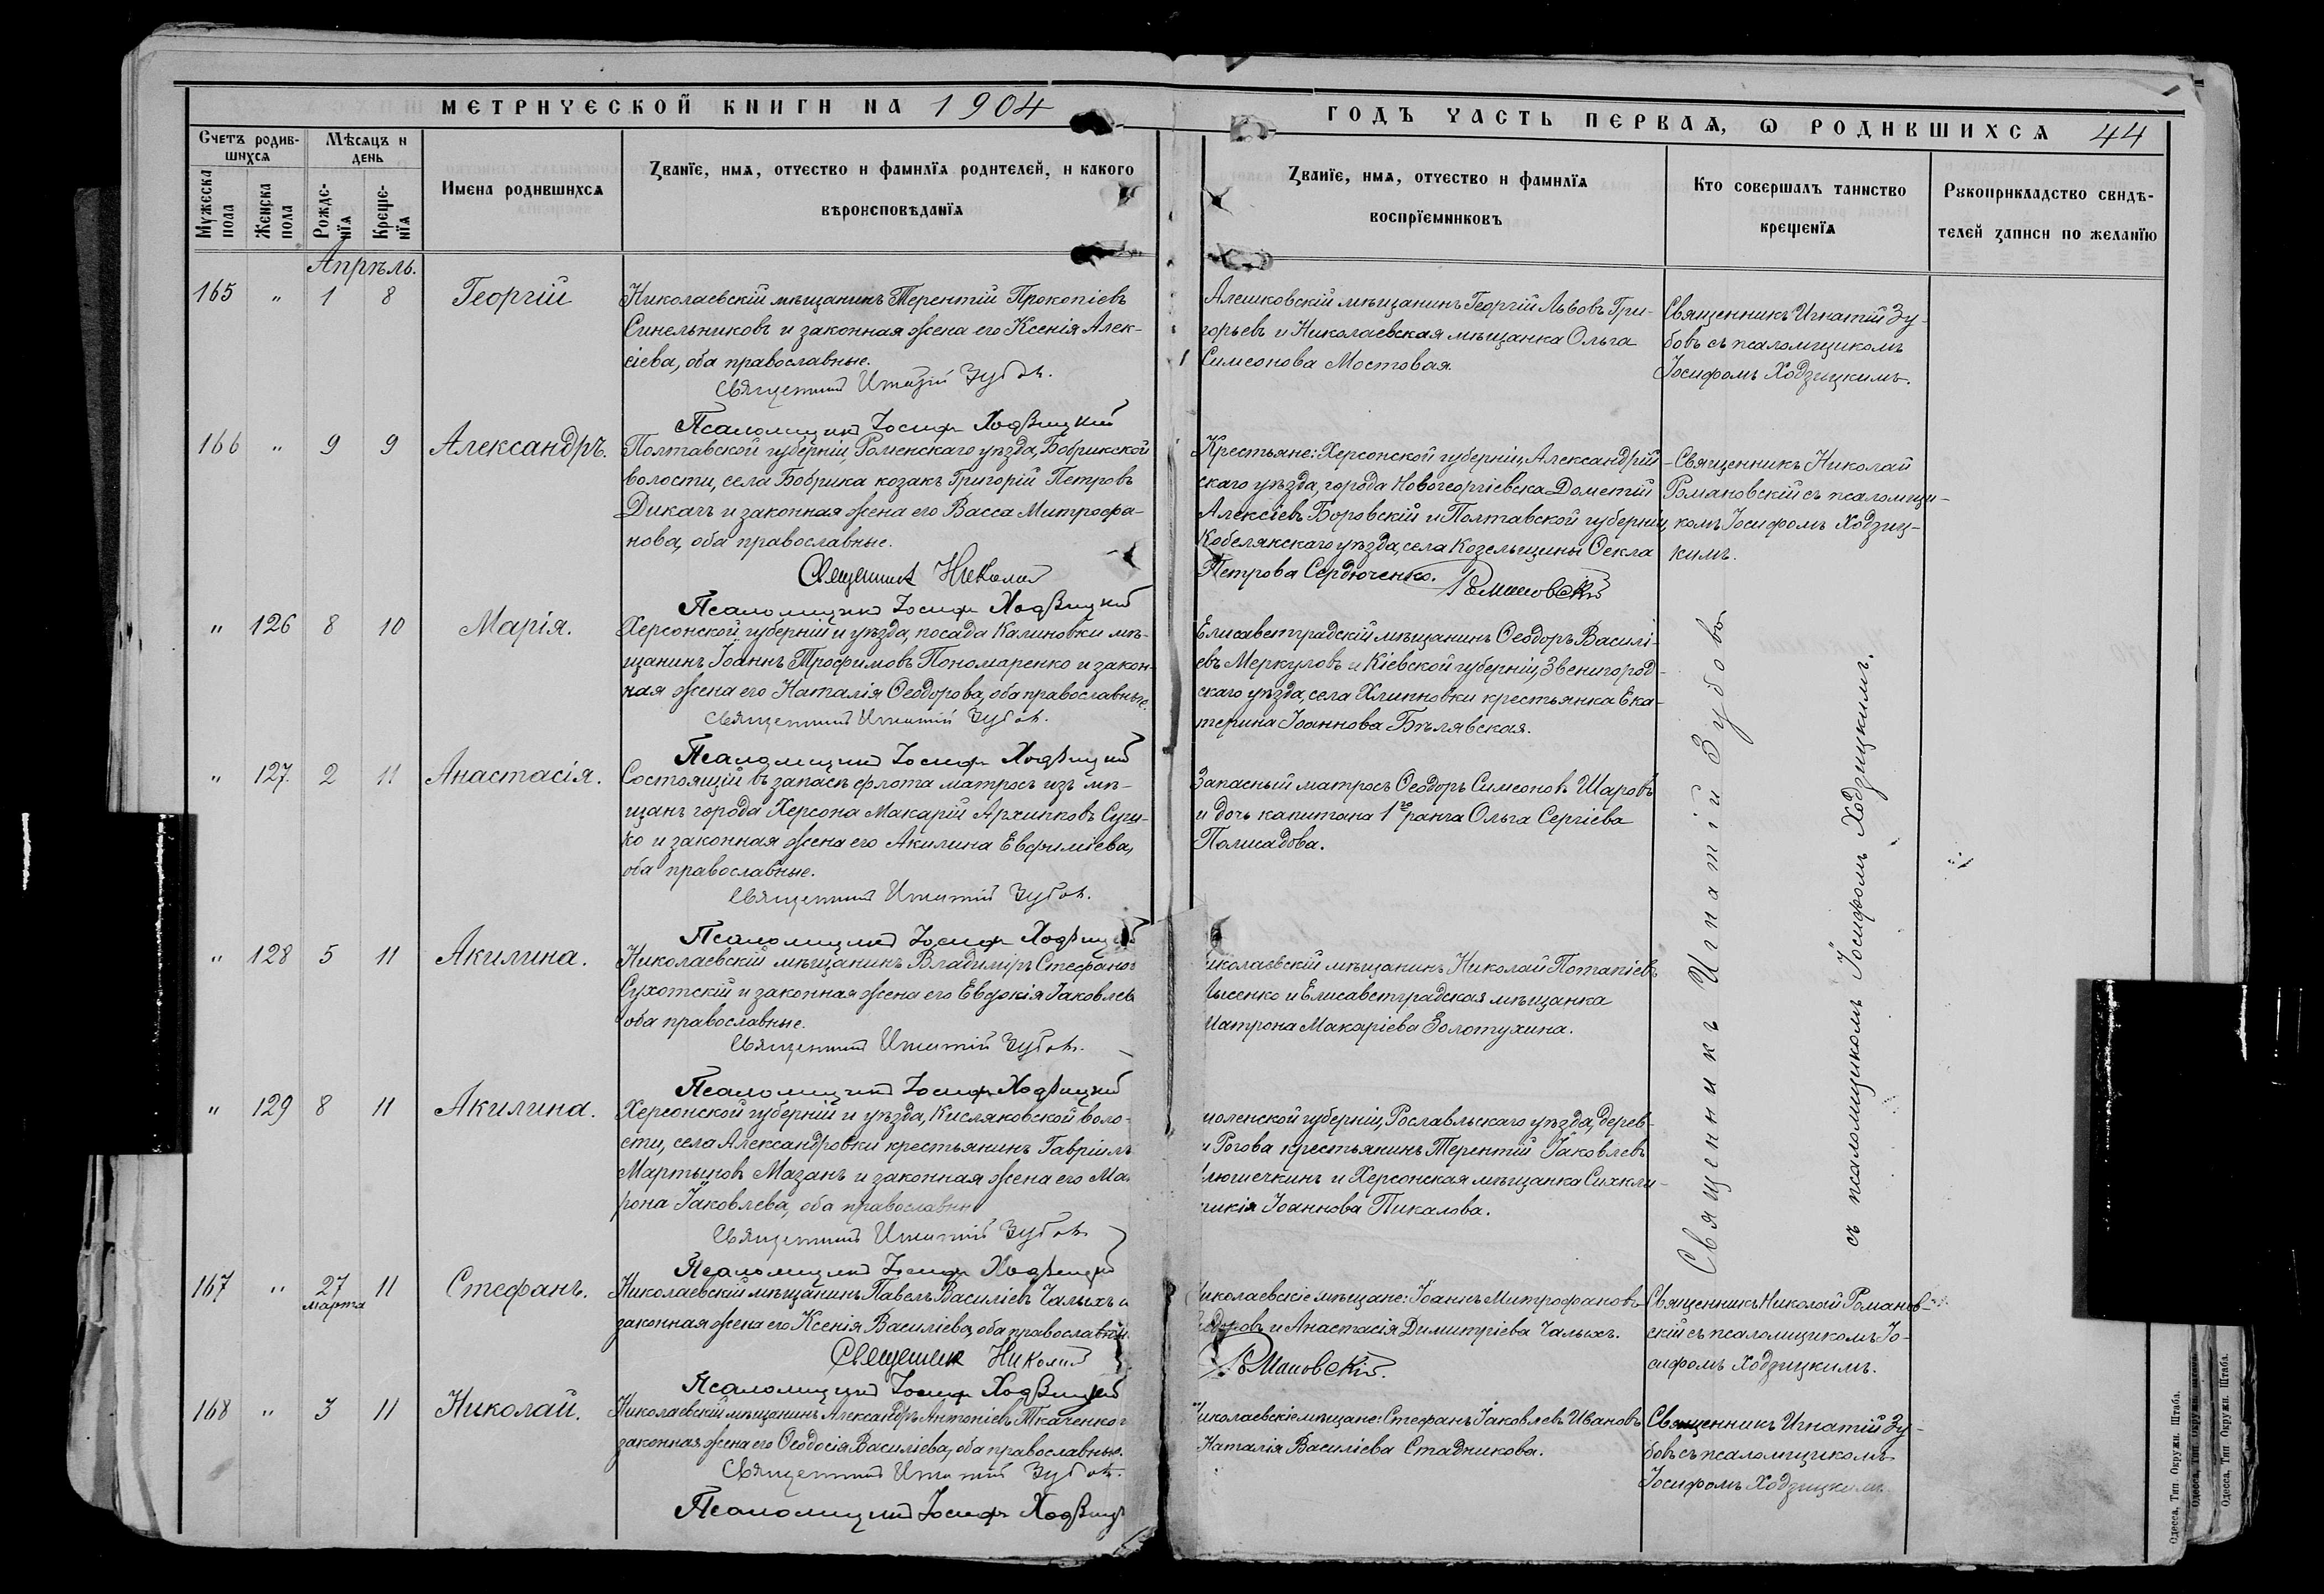 МЕТРИЧЕСКОЙ КНИГИ НА 1904
ГОДЪ ЧАСТЬ ПЕРВАѦ, Ѡ РОДИВШИХСѦ 44
Счетъ родив-
шихсѧ
Мѣсѧцъ и
день
Мужеска
пола
Женска
пола
Рожде-
нїѧ
Креще-
нїѧ
Имена родившихсѧ
Званїе, имѧ, отчество и фамилїѧ родителей, и какого
вѣроисповѣданїѧ
Званїе, имѧ, отчество и фамилїѧ
воспрїемниковъ
Кто совершалъ таинство
крещенїѧ
Рукоприкладство свидѣ-
телей записи по желанїю
Апрѣль.
165 " 1 8 Георгій
Николаевскій мѣщанинъ Терентій Прокопіевъ
Синельниковъ и законная жена его Ксенія Алек-
сіева, оба православные.
Священникъ Игнатій Зубовъ.
Псаломщикъ Іосифъ Ходзицкій
Алешковскій мѣщанинъ Георгій Львовъ Гри-
горьевъ и Николаевская мѣщанка Ольга
Симеонова Мостовая.
Священникъ Игнатій Зу-
бовъ съ псаломщикомъ
Іосифомъ Ходзицкимъ.
166 " 9 9 Александръ.
Полтавской губерніи, Роменскаго уѣзда, Бобрикской
волости, села Бобрика козакъ Григорій Петровъ
Дикачъ и законная жена его Васса Митрофа-
нова, оба православные.
Священникъ Николай
Романовскій
Псаломщикъ Іосифъ Ходзицкій
Крестьяне: Херсонской губерніи, Александрій-
скаго уѣзда, города Новогеоргіевска Дометій
Алексіевъ Боровскій и Полтавской губерніи,
Кобелякскаго уѣзда, села Козельщины Ѳекла
Петрова Сердюченко.
Священникъ Николай
Романовскій съ псаломщи-
комъ Іосифомъ Ходзиц-
кимъ.
" 126 8 10 Марія.
Херсонской губерніи и уѣзда, посада Калиновки мѣ-
щанинъ Іоаннъ Трофимовъ Пономаренко и закон-
ная жена его Наталія Ѳеодорова, оба православные.
Священникъ Игнатій Зубовъ.
Псаломщикъ Іосифъ Ходзицкій
Елисаветградскій мѣщанинъ Ѳеодоръ Василі-
евъ Меркуловъ и Кіевской губерніи, Звенигород-
скаго уѣзда, села Хлипновки крестьянка Ека-
терина Іоаннова Бѣлявская.
Священникъ Игнатій Зубовъ
съ псаломщикомъ Іосифомъ Ходзицкимъ.
" 127. 2 11 Анастасія.
Состоящій въ запасѣ флота матросъ изъ мѣ-
щанъ города Херсона Макарій Архиповъ Сущ-
ко и законная жена его Акилина Евфиміева,
оба православные.
Священникъ Игнатій Зубовъ.
Псаломщикъ Іосифъ Ходзицкій
Запасный матросъ Ѳеодоръ Симеоновъ Шаровъ
и дочь капитана 1го ранга Ольга Сергіева
Полисадова.
" 128 5 11 Акилина.
Николаевскій мѣщанинъ Владиміръ Стефанов
Сухотскій и законная жена его Евдокія Іаковлев
оба православные.
Священникъ Игнатій Зубовъ.
Псаломщикъ Іосифъ Ходзицкій
иколаевскій мѣщанинъ Николай Потапіевъ
Лысенко и Елисаветградская мѣщанка
Матрона Макаріева Золотухина.
" 129 8 11 Акилина.
Херсонской губерніи и уѣзда, Кисляковской воло-
сти, села Александровки крестьянинъ Гавріилъ
Мартыновъ Мазанъ и законная жена его Мат
рона Іаковлева, оба православны
Священникъ Игнатій Зубовъ
Псаломщикъ Іосифъ Ходзицкій
моленской губерніи, Рославльскаго уѣзда, дерев-
и Рогова крестьянинъ Терентій Іаковлевъ
люшечкинъ и Херсонская мѣщанка Синкли-
тикія Іоаннова Пикалова.
167 " 27 марта 11 Стефанъ.
Николаевскій мѣщанинъ Павелъ Василіевъ Чалыхъ и
законная жена его Ксенія Василіева, оба православны
Священникъ Николай
Романовскій.
Псаломщикъ Іосифъ Ходзицкій
Николаевскіе мѣщане: Іоаннъ Митрофановъ
и Анастасія Димитріева Чалыхъ.
Священникъ Николай Романов-
скій съ псаломщикомъ Іо-
сифомъ Ходзицкимъ.
168 " 3 11 Николай.
Николаевскій мѣщанинъ Александръ Антоніевъ Ткаченко и
законная жена его Ѳеодосія Василіева, оба православные.
Священникъ Игнатій Зубовъ.
Псаломщикъ Іосифъ Ходзицк
Николаевскіе мѣщане: Стефанъ Іаковлевъ Ивановъ
Наталія Василіева Стадникова.
Священникъ Игнатій Зу-
бовъ съ псаломщикомъ
Іосифомъ Ходзицкимъ
Одесса, Тип. Окружн. Штаба.
Одесса, Тип. Окружн. Штаба.
Одесса, Тип. Окружн. Штаба.